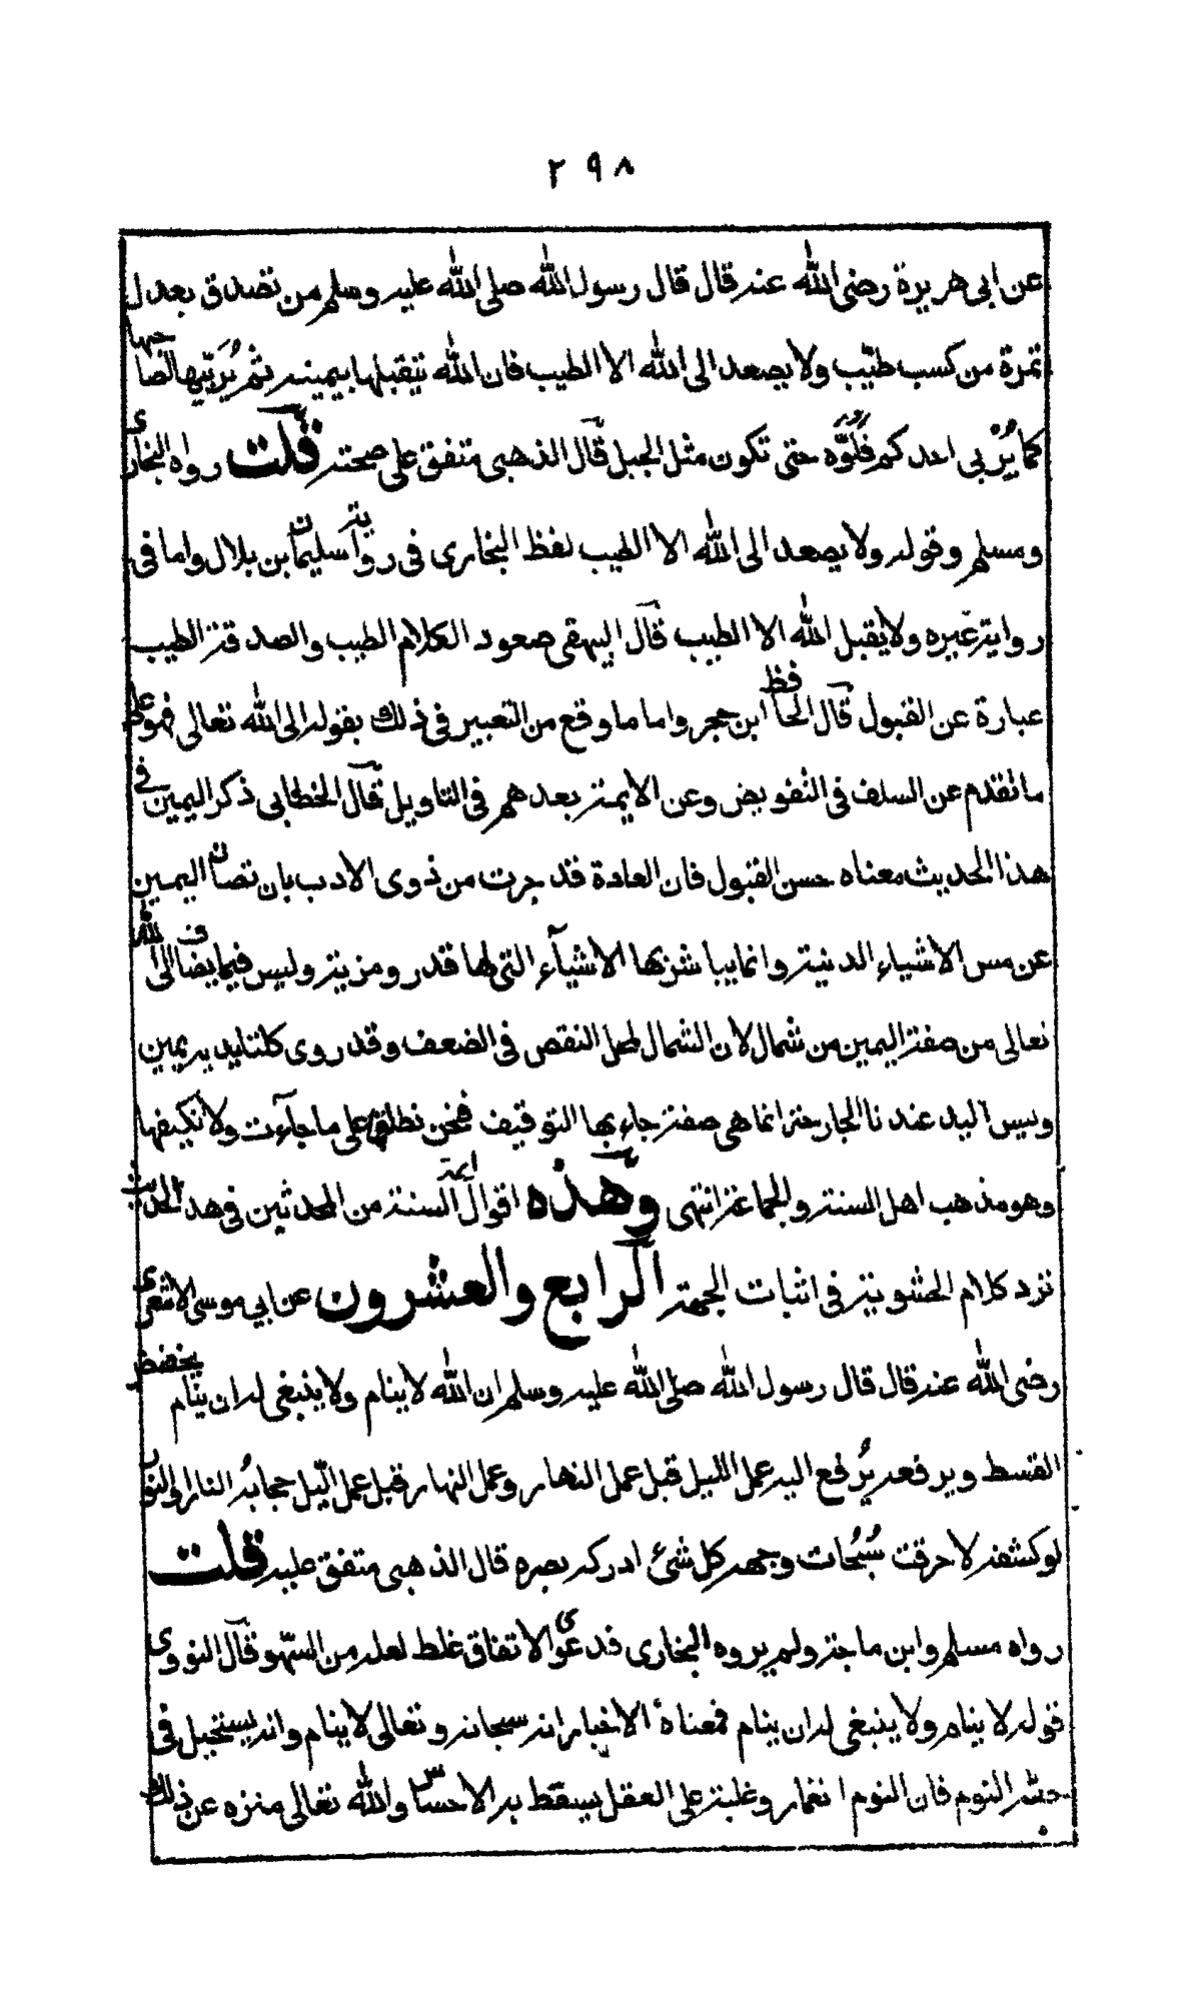 ٢٩٨
عن ابى هريرة رضى الله عنه قال قال رسول الله صلى الله عليه وسلم من تصدق بعدل
تمرة من كسب طيّب ولا يصعد الى الله الا الطيب فان الله يتقبلها بيمينه ثم يُرَبّيها لصاحبها
كما يُرْبى احدكم فَلُوَّه حتى تكون مثل الجبل قال الذهبى متفق على صحته قلت رواه البخارى
ومسلم وقوله ولا يصعد الى الله الا الطيب لفظ البخارى فى رواية سليمان بن بلال واما فى
رواية غيره ولا يقبل الله الا الطيب قال البيهقى صعود الكلام الطيب والصدقة الطيب
عبارة عن القبول قال الحافظ ابن حجر واما ما وقع من التعبير فى ذلك بقوله الى الله تعالى فهو على
ما تقدم عن السلف فى التفويض وعن الايمة بعدهم فى التاويل قال الخطابى ذكر اليمين فى
هذا الحديث معناه حسن القبول فان العادة قد جرت من ذوى الادب بان تصان اليمين
عن مس الاشياء الدنية وانما يباشر بها الاشيآء التى لها قدر ومزية وليس فيما يضاف الى الله
تعالى من صفة اليمين من شمال لان الشمال لمحل النقص فى الضعف وقد روى كلتا يديه يمين
وليس اليد عندنا الجارحة انما هى صفة جاء بها التوقيف فنحن نطلقها على ما جآءت ولا نكيفها
وهو مذهب اهل السنة والجماعة انتهى وهذه اقوال ايمة السنة من المحدثين فى هذ الحديث
نرد كلام الحشوية فى اثبات الجهة الرابع والعشرون عن ابي موسى الاشعرى
رضى الله عنه قال قال رسول الله صلى الله عليه وسلم ان الله لا ينام ولا ينبغى له ان ينام يخفض
القسط ويرفعه يُرفع اليه عمل الليل قبل عمل النهار وعمل النهار قبل عمل الّيل حجابُه النار او النور
لو كشفه لاحرقت سُبُحات وجهه كل شئ ادركه بصره قال الذهبى متفق عليه قلت
رواه مسلم وابن ماجة ولم يروه البخارى فدعوى الاتفاق غلط لعله من السّهو قال النووى
قوله لا ينام ولا ينبغى له ان ينام فمعناه الاخبار انه سبحانه وتعالى لا ينام وانه يستحيل فى
حقه النوم فان النوم انغمار وغلبة على العقل يسقط به الاحساس والله تعالى منزه عن ذلك